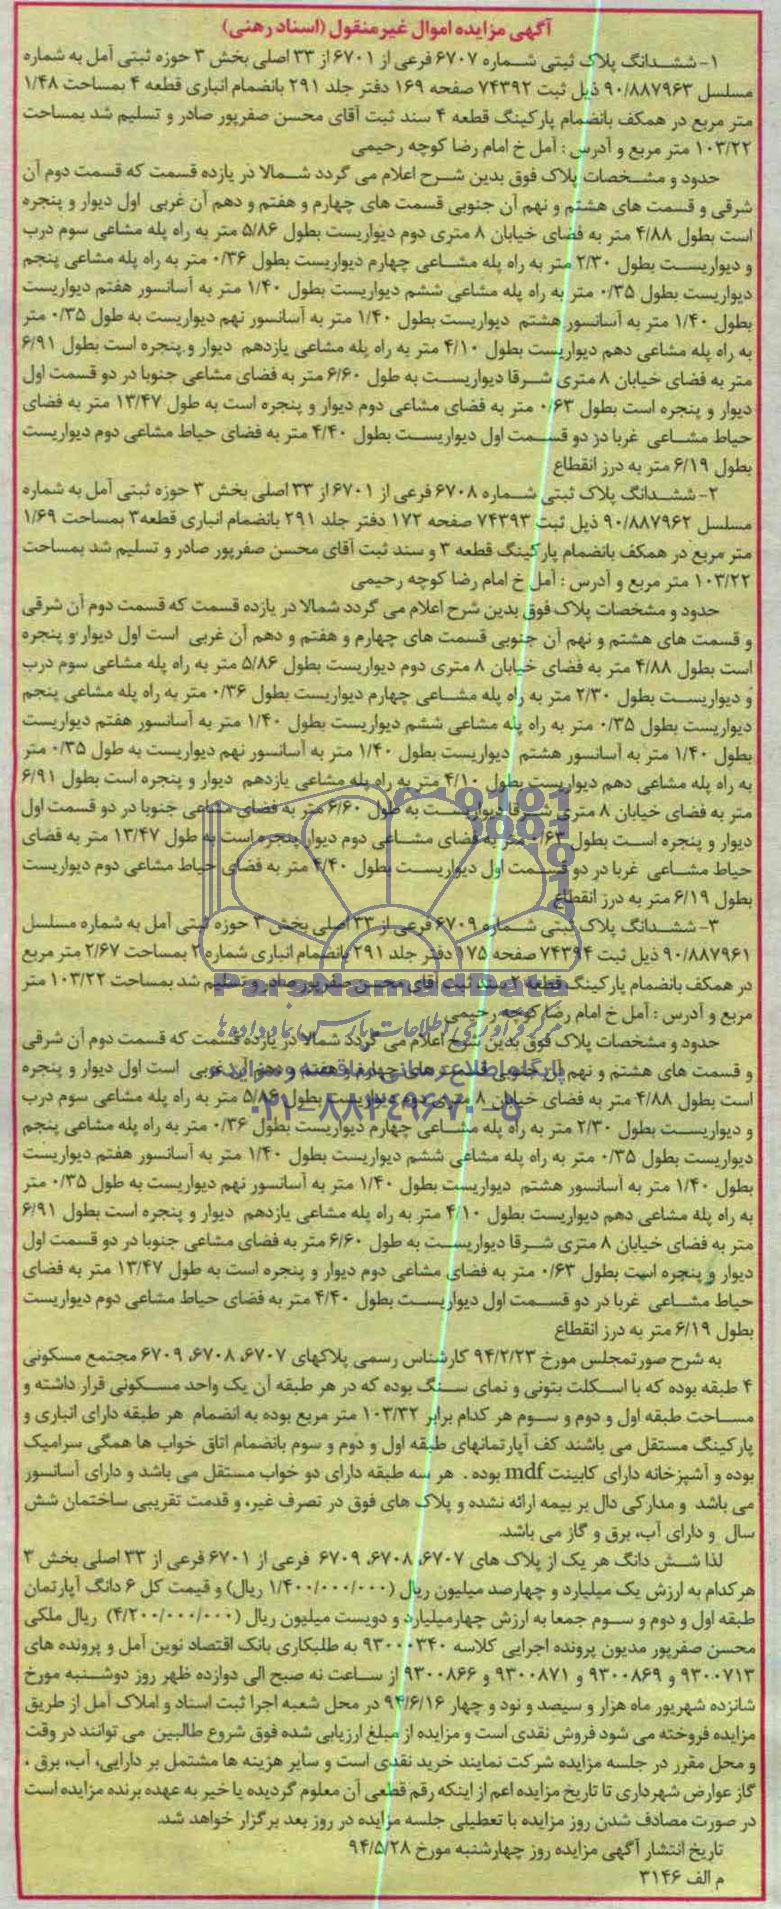 آگهی مزایده اموال غیرمنقول (اسناد رهنی)
۱- ششدانگ پلاک ثبتی شماره ۶۷۰۷ فرعی از ۶۷۰۱ از ۳۳ اصلی بخش ۳ حوزه ثبتی آمل به شماره
مسلسل ۹۰/۸۸۷۹۶۳ ذیل ثبت ۷۴۳۹۲ صفحه ۱۶۹ دفتر جلد ۲۹۱ بانضمام انباری قطعه ۴ بمساحت ۱/۴۸
متر مربع در همکف بانضمام پارکینگ قطعه ۴ سند ثبت آقای محسن صفرپور صادر و تسلیم شد بمساحت
۱۰۳/۲۲ متر مربع و آدرس : آمل خ امام رضا کوچه رحیمی
حدود و مشخصات پلاک فوق بدین شرح اعلام می گردد شمالا در یازده قسمت که قسمت دوم آن
شرقی و قسمت های هشتم و نهم آن جنوبی قسمت های چهارم و هفتم و دهم آن غربی اول دیوار و پنجره
است بطول ۴/۸۸ متر به فضای خیابان ۸ متری دوم دیواریست بطول ۵/۸۶ متر به راه پله مشاعی سوم درب
و دیواریست بطول ۲/۳۰ متر به راه پله مشاعی چهارم دیواریست بطول ۰/۳۶ متر به راه پله مشاعی پنجم
دیواریست بطول ۰/۳۵ متر به راه پله مشاعی ششم دیواریست بطول ۱/۴۰ متر به آسانسور هفتم دیواریست
بطول ۱/۴۰ متر به آسانسور هشتم دیواریست بطول ۱/۴۰ متر به آسانسور نهم دیواریست به طول ۰/۳۵ متر
به راه پله مشاعی دهم دیواریست بطول ۴/۱۰ متر به راه پله مشاعی یازدهم دیوار و پنجره است بطول ۶/۹۱
متر به فضای خیابان ۸ متری شرقا دیواریست به طول ۶/۶۰ متر به فضای مشاعی جنوبا در دو قسمت اول
دیوار و پنجره است بطول ۰/۶۳ متر به فضای مشاعی دوم دیوار و پنجره است به طول ۱۳/۴۷ متر به فضای
حیاط مشاعی غربا در دو قسمت اول دیواریست بطول ۴/۴۰ متر به فضای حیاط مشاعی دوم دیواریست
بطول ۶/۱۹ متر به درز انقطاع
۲- ششدانگ پلاک ثبتی شماره ۶۷۰۸ فرعی از ۶۷۰۱ از ۳۳ اصلی بخش ۳ حوزه ثبتی آمل به شماره
مسلسل ۹۰/۸۸۷۹۶۲ ذیل ثبت ۷۴۳۹۳ صفحه ۱۷۲ دفتر جلد ۲۹۱ بانضمام انباری قطعه۳ بمساحت ۱/۶۹
متر مربع در همکف بانضمام پارکینگ قطعه ۳ و سند ثبت آقای محسن صفرپور صادر و تسلیم شد بمساحت
۱۰۳/۲۲ متر مربع و آدرس : آمل خ امام رضا کوچه رحیمی
حدود و مشخصات پلاک فوق بدین شرح اعلام می گردد شمالا در یازده قسمت که قسمت دوم آن شرقی
و قسمت های هشتم و نهم آن جنوبی قسمت های چهارم و هفتم و دهم آن غربی است اول دیوار و پنجره
است بطول ۴/۸۸ متر به فضای خیابان ۸ متری دوم دیواریست بطول ۵/۸۶ متر به راه پله مشاعی سوم درب
و دیواریست بطول ۲/۳۰ متر به راه پله مشاعی چهارم دیواریست بطول ۰/۳۶ متر به راه پله مشاعی پنجم
دیواریست بطول ۰/۳۵ متر به راه پله مشاعی ششم دیواریست بطول ۱/۴۰ متر به آسانسور هفتم دیواریست
بطول ۱/۴۰ متر به آسانسور هشتم دیواریست بطول ۱/۴۰ متر به آسانسور نهم دیواریست به طول ۰/۳۵ متر
به راه پله مشاعی دهم دیواریست بطول ۴/۱۰ متر به راه پله مشاعی یازدهم دیوار و پنجره است بطول ۶/۹۱
متر به فضای خیابان ۸ متری شرقا دیواریست به طول ۶/۶۰ متر به فضای مشاعی جنوبا در دو قسمت اول
دیوار و پنجره است بطول ۰/۶۳ متر به فضای مشاعی دوم دیوار پنجره است به طول ۱۳/۴۷ متر به فضای
حیاط مشاعی غربا در دو قسمت اول دیواریست بطول ۴/۴۰ متر به فضای حیاط مشاعی دوم دیواریست
بطول ۶/۱۹ متر به درز انقطاع
۳- ششدانگ پلاک ثبتی شماره ۶۷۰۹ فرعی از ۳۳ اصلی بخش ۳ حوزه ثبتی آمل به شماره مسلسل
۹۰/۸۸۷۹۶۱ ذیل ثبت ۷۴۳۹۴ صفحه ۱۷۵ دفتر جلد ۲۹۱ بانضمام انباری شماره ۲ بمساحت ۲/۶۷ متر مربع
در همکف بانضمام پارکینگ قطعه ۲ سند ثبت آقای محسن صفرپور صادر و تسلیم شد بمساحت ۱۰۳/۲۲ متر
ParsNamadData
مربع و آدرس : آمل خ امام رضا کوچه رحیمی
مرکز فرآوری اطلاعات پارس نماد داده ها
حدود و مشخصات پلاک فوق بدین شرح اعلام می گردد شمالا در یازده قسمت که قسمت دوم آن شرقی
و قسمت های هشتم و نهم آن جنوبی قسمت های چهارم و هفتم و دهم آن غربی است اول دیوار و پنجره
پایگاه اطلاع رسانی مناقصه و مزایده
است بطول ۴/۸۸ متر به فضای خیابان ۸ متری دوم دیواریست بطول ۵/۸۶ متر به راه پله مشاعی سوم درب
۰۲۱-۸۸۳۴۹۶۷۰-۵
و دیواریست بطول ۲/۳۰ متر به راه پله مشاعی چهارم دیواریست بطول ۰/۳۶ متر به راه پله مشاعی پنجم
دیواریست بطول ۰/۳۵ متر به راه پله مشاعی ششم دیواریست بطول ۱/۴۰ متر به آسانسور هفتم دیواریست
بطول ۱/۴۰ متر به آسانسور هشتم دیواریست بطول ۱/۴۰ متر به آسانسور نهم دیواریست به طول ۰/۳۵ متر
به راه پله مشاعی دهم دیواریست بطول ۴/۱۰ متر به راه پله مشاعی یازدهم دیوار و پنجره است بطول ۶/۹۱
متر به فضای خیابان ۸ متری شرقا دیواریست به طول ۶/۶۰ متر به فضای مشاعی جنوبا در دو قسمت اول
دیوار و پنجره است بطول ۰/۶۳ متر به فضای مشاعی دوم دیوار و پنجره است به طول ۱۳/۴۷ متر به فضای
حیاط مشاعی غربا در دو قسمت اول دیواریست بطول ۴/۴۰ متر به فضای حیاط مشاعی دوم دیواریست
بطول ۶/۱۹ متر به درز انقطاع
به شرح صورتمجلس مورخ ۹۴/۲/۲۳ کارشناس رسمی پلاکهای ۶۷۰۷، ۶۷۰۸، ۶۷۰۹ مجتمع مسکونی
۴ طبقه بوده که با اسکلت بتونی و نمای سنگ بوده که در هر طبقه آن یک واحد مسکونی قرار داشته و
مساحت طبقه اول و دوم و سوم هر کدام برابر ۱۰۳/۳۲ متر مربع بوده به انضمام هر طبقه دارای انباری و
پارکینگ مستقل می باشند کف آپارتمانهای طبقه اول و دوم و سوم بانضمام اتاق خواب ها همگی سرامیک
بوده و آشپزخانه دارای کابینت mdf بوده . هر سه طبقه دارای دو خواب مستقل می باشد و دارای آسانسور
می باشد و مدارکی دال بر بیمه ارائه نشده و پلاک های فوق در تصرف غیر، و قدمت تقریبی ساختمان شش
سال و دارای آب، برق و گاز می باشد.
لذا شش دانگ هر یک از پلاک های ۶۷۰۷، ۶۷۰۸، ۶۷۰۹ فرعی از ۶۷۰۱ فرعی از ۳۳ اصلی بخش ۳
هرکدام به ارزش یک میلیارد و چهارصد میلیون ریال (۱/۴۰۰/۰۰۰/۰۰۰ ریال) و قیمت کل ۶ دانگ آپارتمان
طبقه اول و دوم و سوم جمعا به ارزش چهارمیلیارد و دویست میلیون ریال (۴/۲۰۰/۰۰۰/۰۰۰) ریال ملکی
محسن صفرپور مدیون پرونده اجرایی کلاسه ۹۳۰۰۰۳۴۰ به طلبکاری بانک اقتصاد نوین آمل و پرونده های
۹۳۰۰۷۱۳ و ۹۳۰۰۸۶۹ و ۹۳۰۰۸۷۱ و ۹۳۰۰۸۶۶ از ساعت نه صبح الی دوازده ظهر روز دوشنبه مورخ
شانزده شهریور ماه هزار و سیصد و نود و چهار ۹۴/۶/۱۶ در محل شعبه اجرا ثبت اسناد و املاک آمل از طریق
مزایده فروخته می شود فروش نقدی است و مزایده از مبلغ ارزیابی شده فوق شروع طالبین می توانند در وقت
و محل مقرر در جلسه مزایده شرکت نمایند خرید نقدی است و سایر هزینه ها مشتمل بر دارایی، آب، برق ،
گاز عوارض شهرداری تا تاریخ مزایده اعم از اینکه رقم قطعی آن معلوم گردیده یا خیر به عهده برنده مزایده است
در صورت مصادف شدن روز مزایده با تعطیلی جلسه مزایده در روز بعد برگزار خواهد شد.
تاریخ انتشار آگهی مزایده روز چهارشنبه مورخ ۹۴/۵/۲۸
م الف ۳۱۴۶